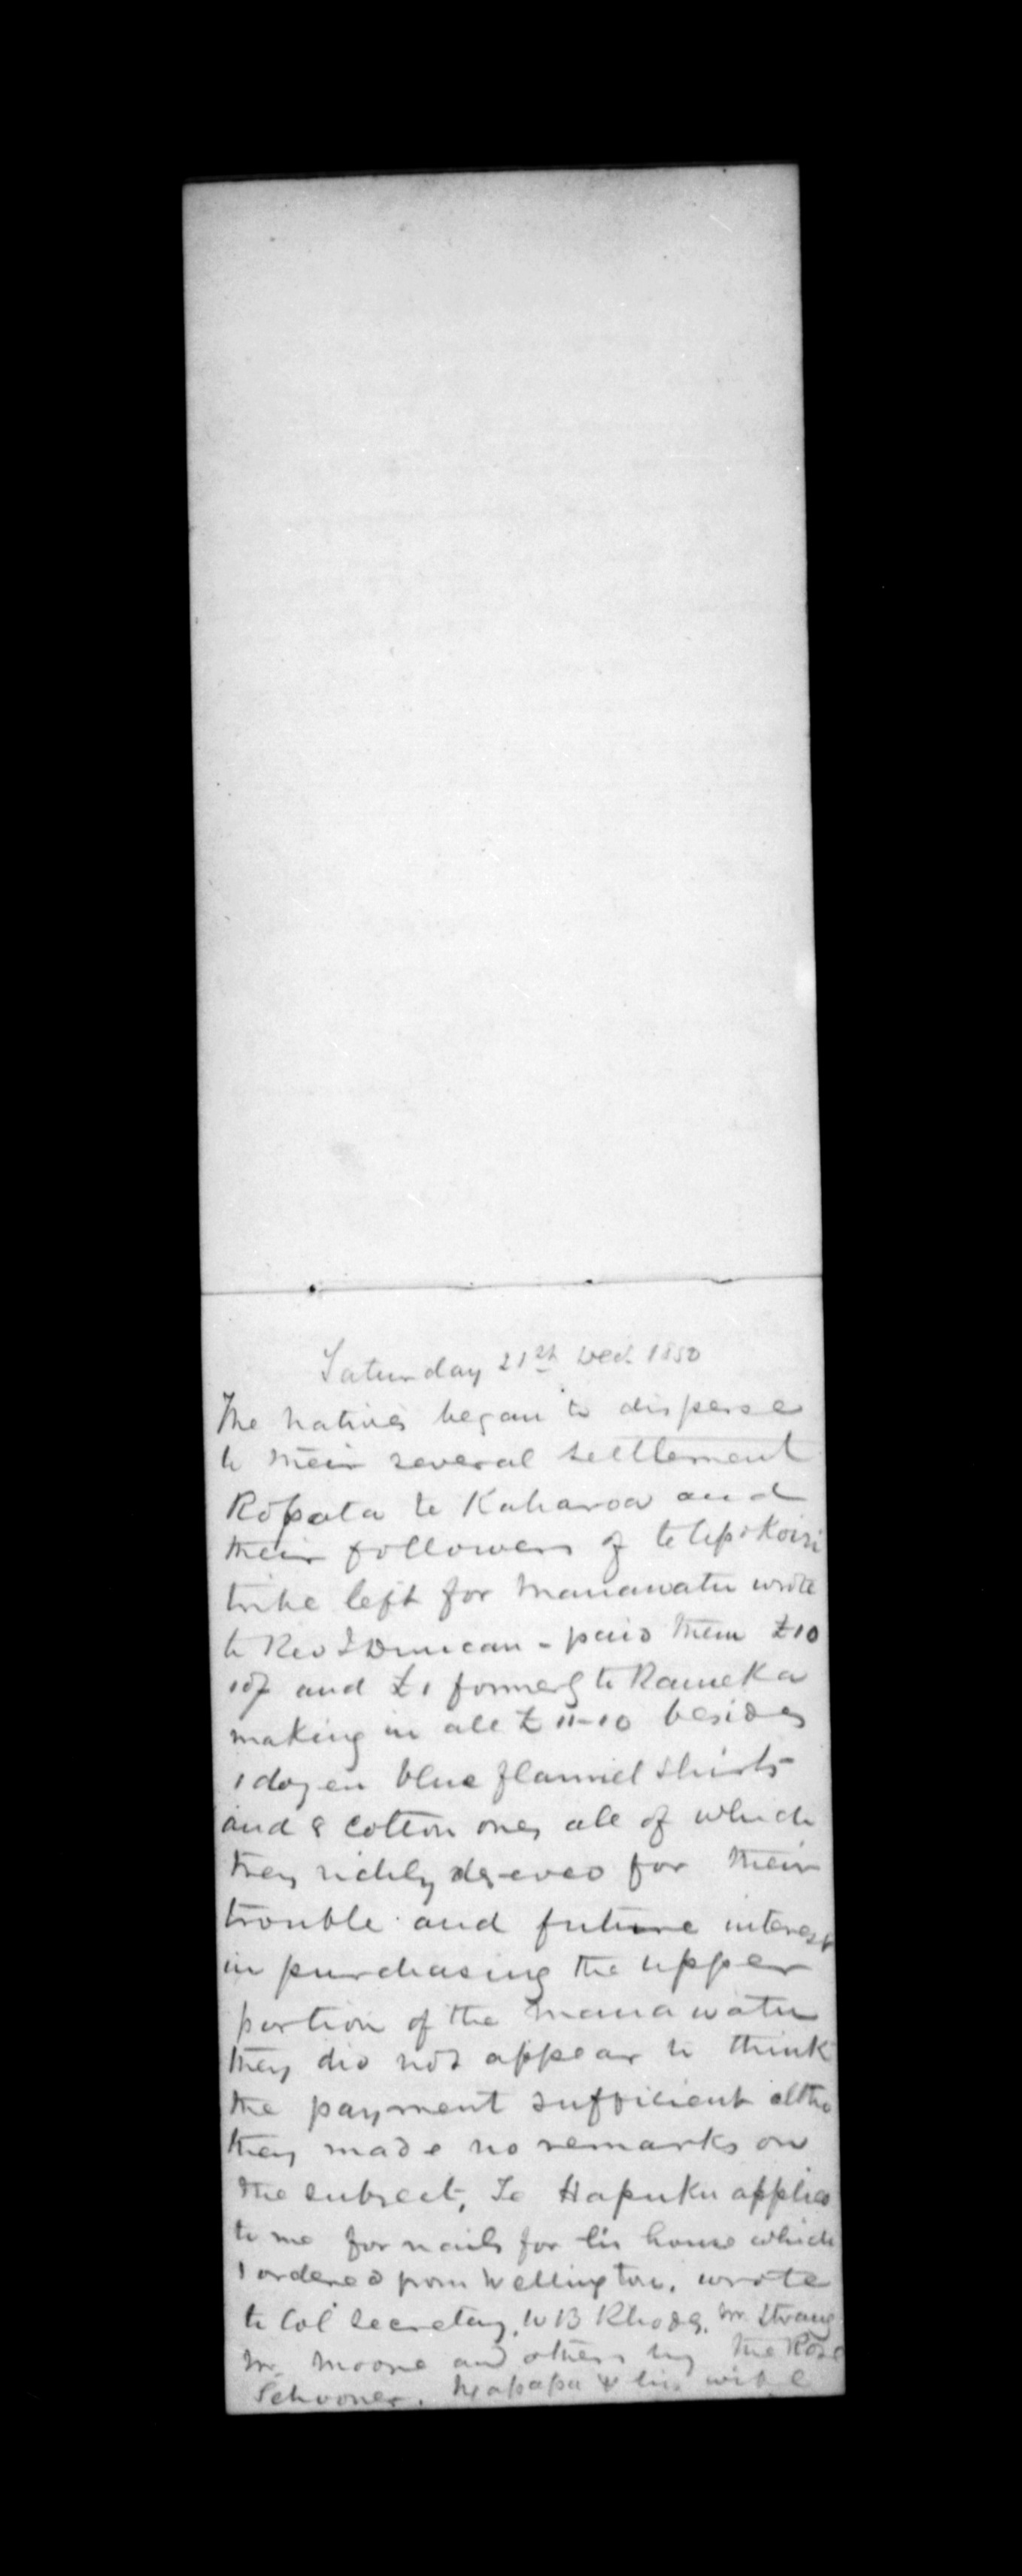 Saturday 21st Dec. 1850
The natives began to disperse
to their several settlement
Ropata te Kaharoa and
their followers of te Upokoiri
tribe left for Manawatu wrote
to Rev J Duncan - paid them £10
10/ and £1 formerly to Rameka
making in all £11-10 besides
1 dozen blue flannel shirts
and 8 cotton ones all of which
they richly deserved for their
trouble and future interest
in purchasing the upper
portion of the Manawatu
they did not appear to think
the payment sufficient altho
they made no remarks on
the subject, Te Hapuku applied
to me for nails for his house which
I ordered from Wellington. wrote
to Col Secretary, W B Rhodes, Mr Strang
Mr. Moore and others by the Rose
Schooner. Ngapapa & his wife